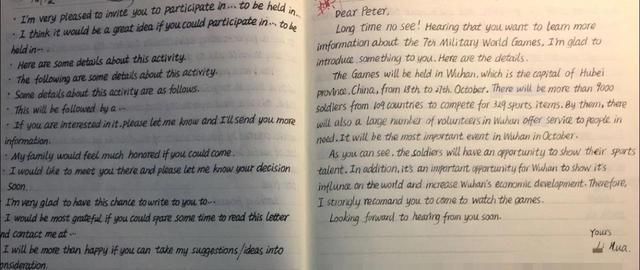 · I'm very pleased to invite you to participate in ··· to be held in...
· I think it would be a great idea if you could participate in ··· to be
held in···
· Here are some details about this activity.
· The following are some details about this activity.
· Some details about this activity are as follows.
· This will be followed by a ···
· If you are interested in it, please let me know and I'll send you more
information.
· My family would feel much honored if you could come.
· I would like to meet you there and please let me know your decision
soon.
I'm very glad to have this chance to write to you to···
I would be most grateful if you could spare some time to read this letter
nd contact me at ···
I will be more than happy if you can take my suggestions/ideas into
onsideration.
Dear Peter,
Long time no see! Hearing that you want to learn more
imformation about the 7th Military World Games, I'm glad to
introduce something to you. Here are the details.
The Games will be held in Wuhan, which is the capital of Hubei
province, China, from 18th to 27th, October. There will be more than 9000
soldiers from 109 countries to compete for 329 sports items. By them, there
will also a large number of volunteers in Wuhan offer service to people in
need. It will be the most important event in Wuhan in October.
As you can see, the soldiers will have an opportunity to show their sports
talent. In addition, it's an important opportunity for Wuhan to show it's
influnce on the world and increase Wuhan's economic development. Therefore,
I strongly recomand you to come to watch the games.
Looking forward to hearing from you soon.
Yours
Hua.